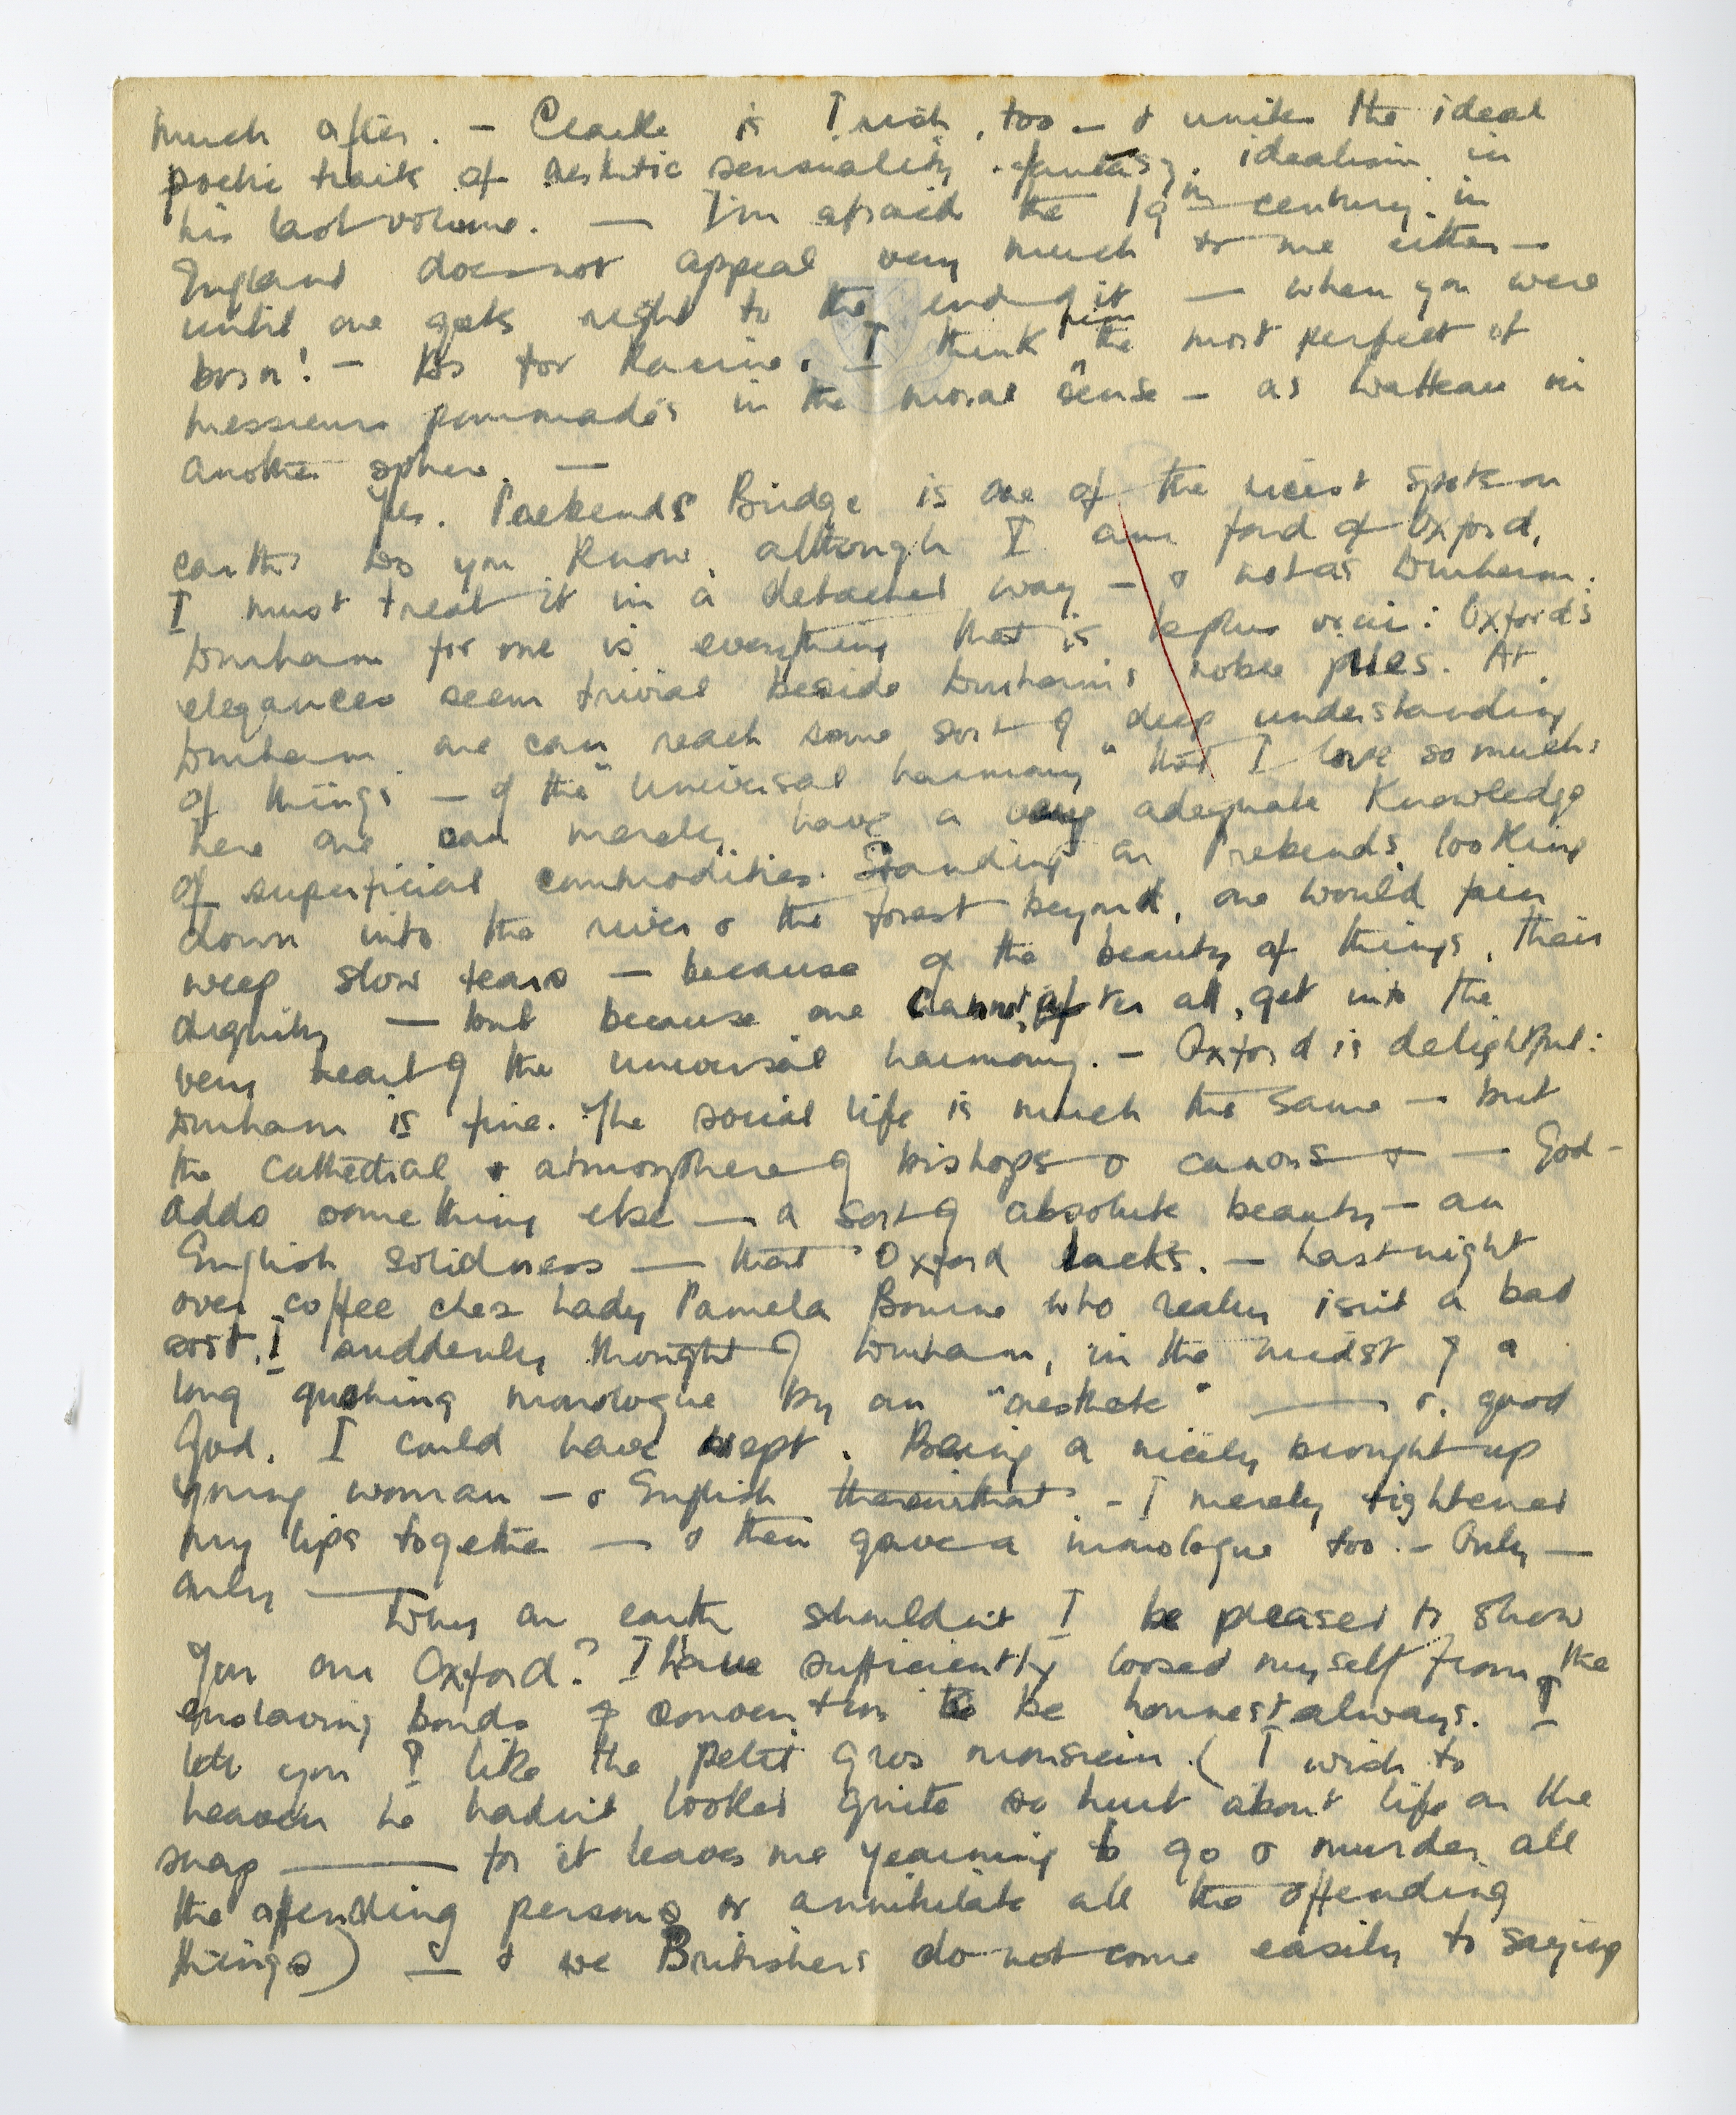 much after. — Clarke is Irish, too — & unites the ideal
poetic traits of aesthetic sensuality, fantasy, idealism in
his last volume. — I'm afraid the 19th century in
England does not appeal very much to me either —
until one gets right to the end of it — when you were
born! — As for Racine, I think him the most perfect of
messieurs pommadés in the moral sense — as Watteau in
another sphere. —
Yes. Prebends Bridge is one of the nicest spots on
earth. As you know, although I am fond of Oxford,
I must treat it in a detached way — & not as Durham.
Durham for me is everything that is : Oxford's
elegances seem trivial beside Durham's noble piles. At
Durham one can reach some sort of deep understanding
of things — of the "universal harmony" that I love so much:
here one can merely have a very adequate knowledge
of superficial commodities. Standing on Prebends, looking
down into the river & the forest beyond, one would fain
weep slow tears — because of the beauty of things, their
dignity — but because one cannot, after all, get into the
very heart of the universal harmony. — Oxford is delightful:
Durham is fine. The social life is much the same — but
the cathedral & atmosphere of bishops & canons & — God —
adds something else — a sort of absolute beauty — an
English solidness — that Oxford lacks. — Last night
over coffee chez Lady Pamela Bourne who really isn't a bad
sort, I suddenly thought of Durham, in the midst of a
long gushing monologue by an "aesthete" — &, good
God, I could have wept. Being a nicely brought up
young woman — & English — I merely tightened
my lips together — & then gave a monologue too. — Only —
only —
Why on earth shouldn't I be pleased to show
you our Oxford? I have sufficiently loosed myself from the
enslaving bonds of convention to be honnest always. I
tell you I like the petit gros monsieur. (I wish to
heaven he hadn't looked quite so hurt about life on the
snap — for it leaves me yearning to go & murder all
the offending persons or annihilate all the offending
things) — & we Britishers do not come easily to saying